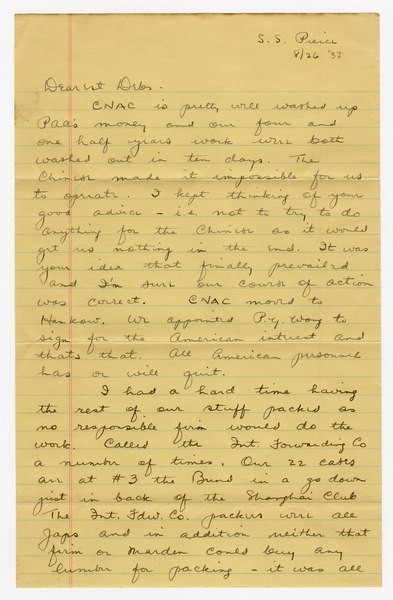 S. S. Pierce
8/26 '37
Dearest Debs.
CNAC is pretty well washed up
PAA's money and our four and
one half years work were both
washed out in ten days. The
Chinese made it impossible for us
to operate. I kept thinking of your
good advice - i.e. not to try to do
anything for the Chinese as it would
get us nothing in the end. It was
your idea that finally prevailed
and I'm sure our course of action
was correct. CNAC moved to
Hankow. We appointed P.Y. Wong to
sign for the American interest and
thats that. All American personnel
has or will quit.
I had a hard time having
the rest of our stuff packed as
no responsible firm would do the
work. Called the Int. Forwarding Co
a number of times. Our 22 cases
are at #3 the Bund in a go down
just in back of the Shanghai Club
The Int. Fdw. Co. packers were all
Japs and in addition neither that
firm or Marden could buy any
lumber for packing - it was all